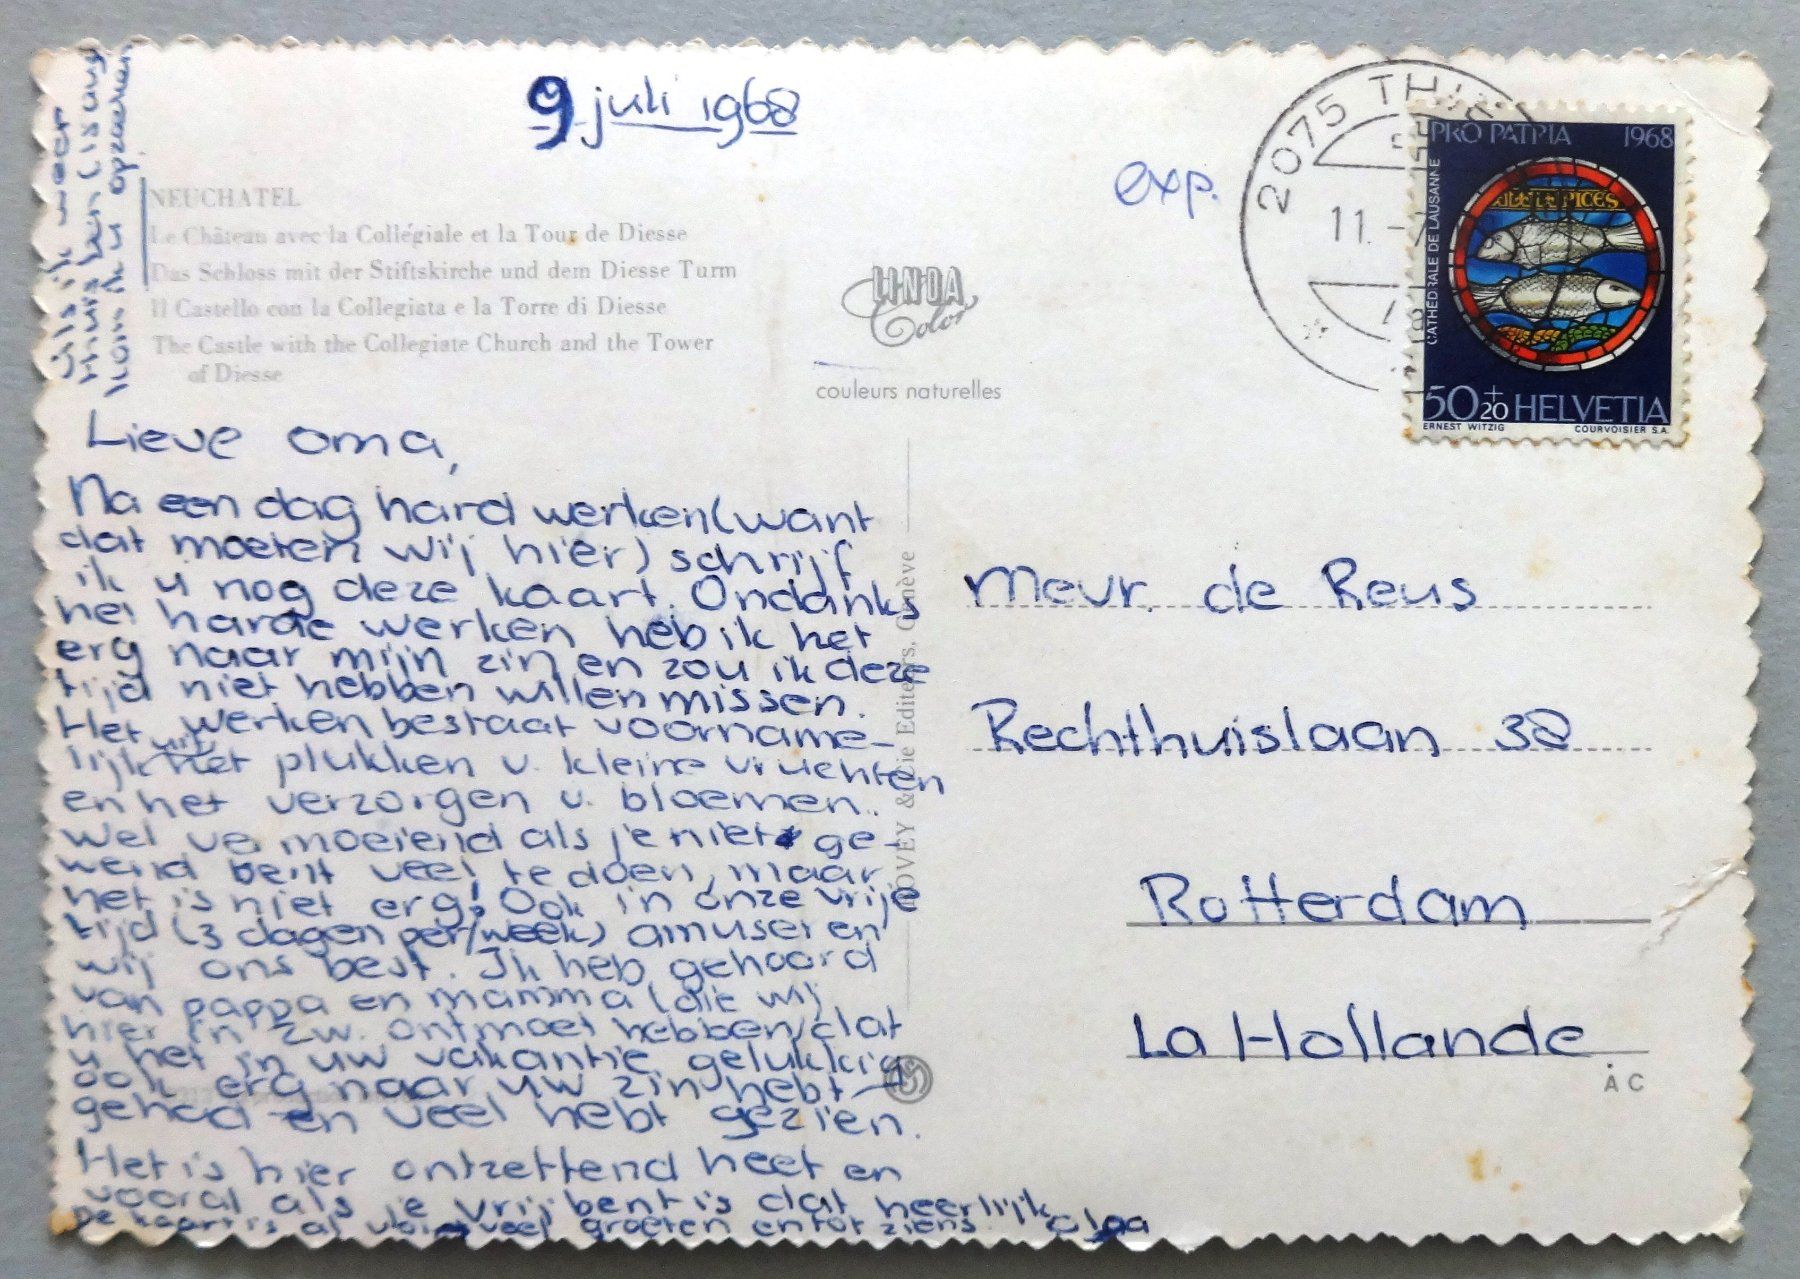 9 juli 1968
exp.
NEUCHATEL
Le Château avec la Collégiale et la Tour de Diesse
Das Schloss mit der Stiftskirche und dem Diesse Turm
Il Castello con la Collegiata e la Torre di Diesse
The Castle with the Collegiate Church and the Tower
of Diesse
LINDA
Color
couleurs naturelles
2075 THI
11.-7
PRO PATRIA 1968
CATHÉDRALE DE LAUSANNE
PICES
50+20 HELVETIA
ERNEST WITZIG COURVOISIER S.A.
Lieve oma,
Na een dag hard werken (want
dat moeten wij hier) schrijf
ik u nog deze kaart. Ondanks
het harde werken heb ik het
erg naar mijn zin en zou ik deze
tijd niet hebben willen missen.
Het werken bestaat voorname-
lijk uit het plukken v. kleine vruchten
en het verzorgen v. bloemen.
Wel vermoeiend als je niet ge-
wend bent veel te doen, maar
het is niet erg! Ook in onze vrije
tijd (3 dagen per/week) amuseren
wij ons best. Ik heb gehoord
van pappa en mamma (die wij
hier in Zw. ontmoet hebben) dat
u het in uw vakantie gelukkig
ook erg naar uw zin hebt
gehad en veel hebt gezien.
Het is hier ontzettend heet en
vooral als je vrij bent is dat heerlijk
De kaart is al vol veel groeten en tot ziens Olga
Als ik weer
thuis ben
kom ik u opzoeken
HOVEY & Cie Editeurs, Genève
Mevr. de Reus
Rechthuislaan 38
Rotterdam
La Hollande
A C